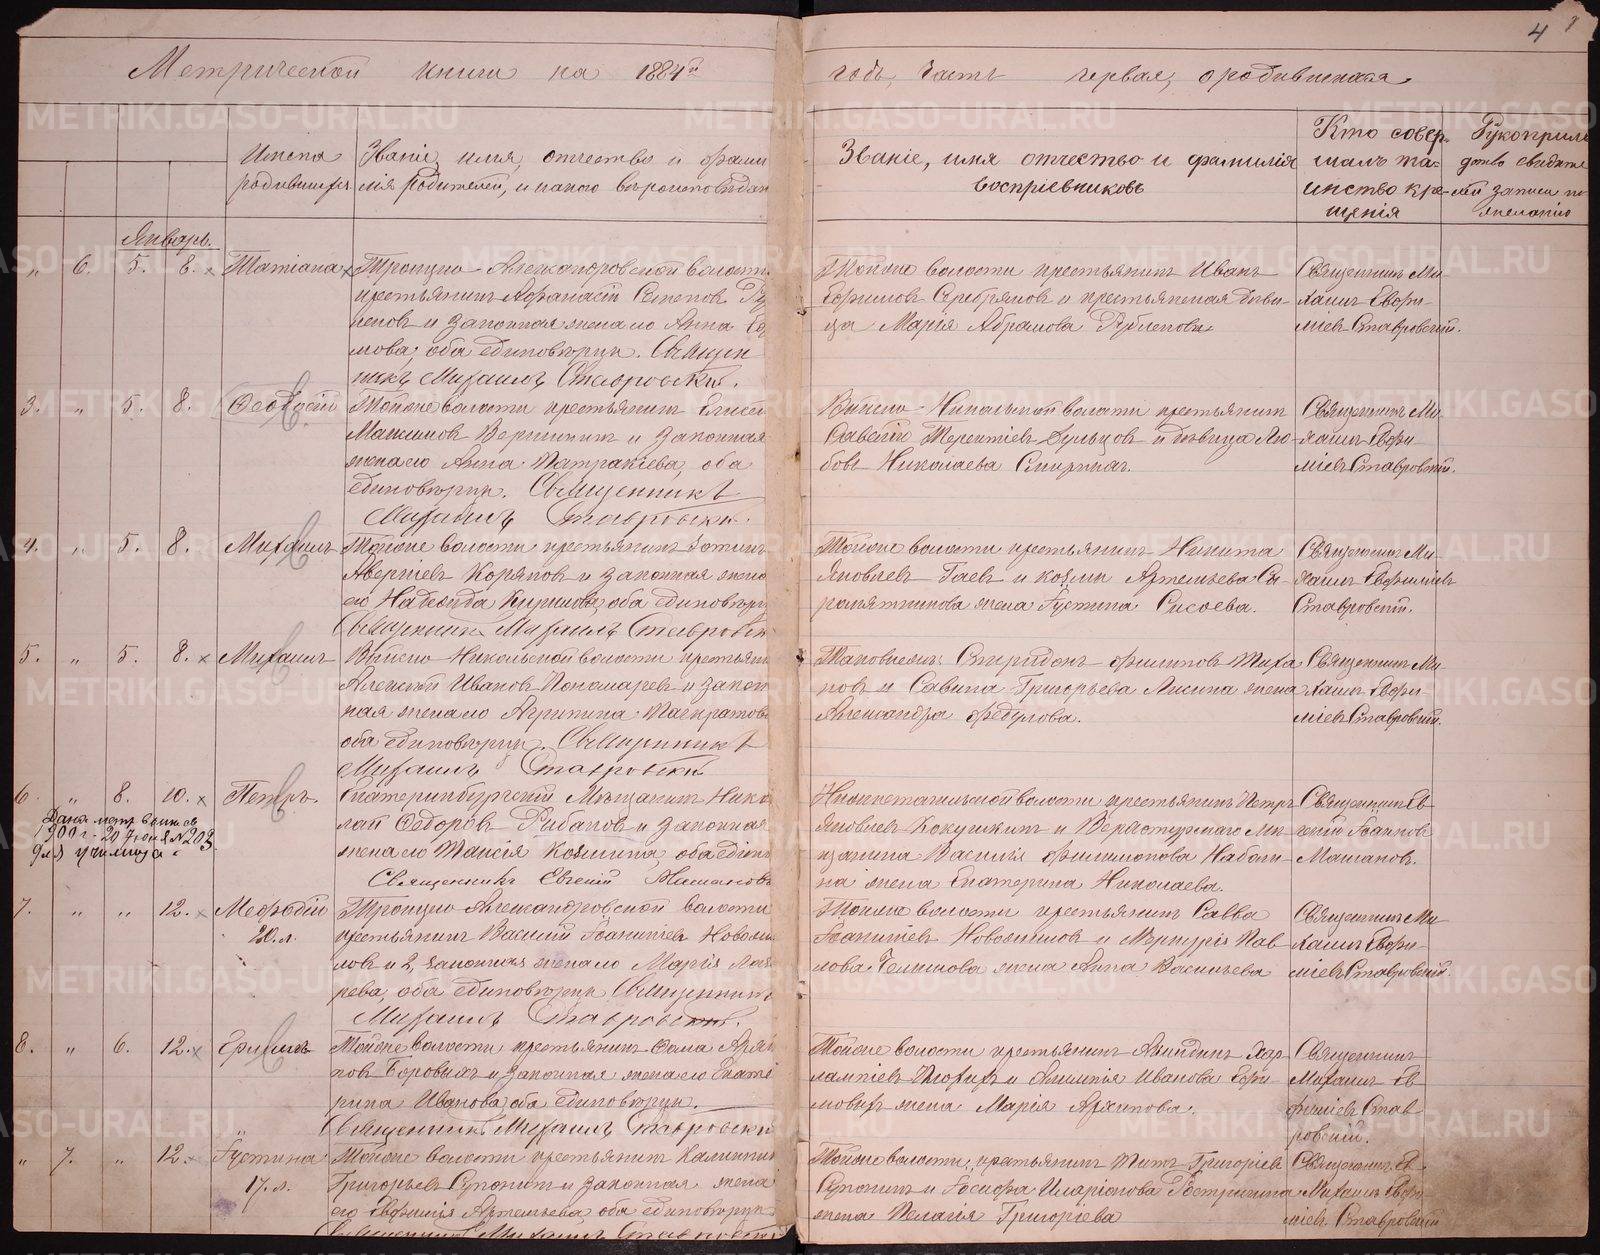 4
Метрической книги на 1884й
годъ, часть первая, о родившихся
Имена
родившихся
Званіе, имя, отчество и фами
лія родителей, и какого вѣроисповѣдан
Званіе, имя отчество и фамилія
воспріемниковъ
Кто совер-
шалъ та-
инство кре-
щенія
Рукоприк
дство свидѣте
лей записи по
желанію
Январь.
„ 6. 5. 8. Татіана
Троицко Александровской волости
крестьянинъ Афанасій Семеновъ
и законная жена его Анна
мова; оба единовѣрцы. Священ
никъ Михаилъ Ставровскій.
Тойже волости крестьянинъ Иванъ
Ефимовъ Серебряковъ и крестьянская дѣви-
ца Марія Абрамова
Священникъ Ми-
хаилъ Евфи-
міевъ Ставровскій.
3. „ 5. 8. Ѳеодосій
Тойже волости крестьянинъ
Максимовъ Вершининъ и законная
жена его Анна Патракіева, оба
единовѣрцы. Священникъ
Михаилъ Ставровскій.
Николькой волости крестьянинъ
Савелій Терентіевъ и дѣвица Лю-
бовь Николаева Спирина.
Священникъ Ми-
хаилъ Евфи-
міевъ Ставровскій.
4. „ 5. 8. Михаилъ
Тойже волости крестьянинъ Фотинъ
Аверкіевъ Коряковъ и законная жена
его Надежда Кирилова, оба единовѣрцы
Священникъ Михаилъ Ставровскій
Тойже волости крестьянинъ Никита
Яковлевъ Гаевъ и Козьмы Артемьева Сы-
ромятникова жена Густина Сисоева.
Священникъ Ми-
хаилъ Евфиміевъ
Ставровскій.
5. „ 5. 8. Михаилъ
Никольской волости крестьян
Алексѣй Ивановъ Пономаревъ и закон
ная жена его Агрипина Панкратова
оба единовѣрцы. Священникъ
Михаилъ Ставровскій
Спиридонъ Филиповъ Тиха
новъ и Савина Григорьева Лисина жена
Александра Федулова.
Священникъ Ми-
хаилъ Евфи-
міевъ Ставровскій.
6 „ 8. 10. Петръ.
Дана метр. выпись
1900 г. 20 Іюня №203
для училища
Екатеринбургскій Мѣщанинъ Нико
лай Ѳедоровъ Рыбаковъ и законная
жена его Таисія Козмина, оба едино
Священникъ Евгеній Машановъ
Нижнетагильской волости крестьянинъ Петръ
Яковлевъ Кокушкинъ и Верхотурскаго мѣ-
щанина Василія Филимонова
на жена Екатерина Николаева.
Священникъ Ев-
геній Іоанновъ
Машановъ.
7. „ „ 12. Мефодій
20. л.
Троицко Александровской волости
крестьянинъ Василій Іоаникіевъ Новожи
ловъ и 2, законная жена его Марія Лаза
рева, оба единовѣрцы Священникъ
Михаилъ Ставровскій.
Тойже волости крестьянинъ Савва
Іоаникіевъ Новожиловъ и Меркурія Пав
лова жена Анна Васильева
Священникъ Ми-
хаилъ Евфи-
міевъ Ставровскій.
8. „ 6. 12.
Тойже волости крестьянинъ Ѳома
повъ Боровыхъ и законная жена его Екате
рина Иванова, оба единовѣрцы.
Священникъ Михаилъ Ставровскій
Тойже волости крестьянинъ Акиндинъ Хар
лампіевъ и Алимпія Иванова Ефи
мовыхъ жена Марія Архипова.
Священникъ
Михаилъ Ев
фиміевъ Став
ровскій.
„ 7. „ 12. Густина
17. л.
Тойже волости крестьянинъ Калинникъ
Григорьевъ Супонинъ и законная жена
его Евфимія Артемьева, оба единовѣрцы
Священникъ Михаилъ Ставровскій
Тойже волости, крестьянинъ Титъ Григоріевъ
Супонинъ и Іосифа Иларіонова
жена Пелагія Григоріева
Священникъ
Михаилъ Евфи
міевъ Ставровскій
METRIKI.GASO-URAL.RU